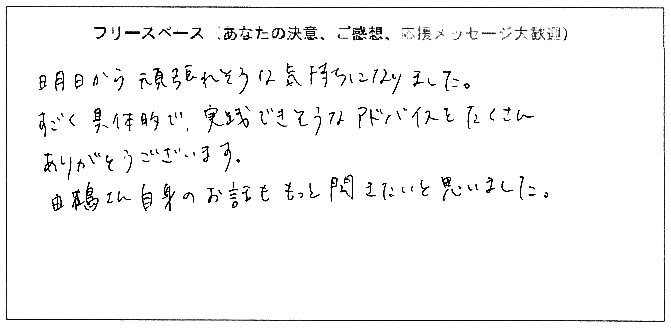 フリースペース（あなたの決意、ご感想、応援メッセージ大歓迎）
明日から頑張れそうな気持ちになりました。
すごく具体的で、実践できそうなアドバイスをたくさん
ありがとうございます。
由鶴さん自身のお話ももっと聞きたいと思いました。